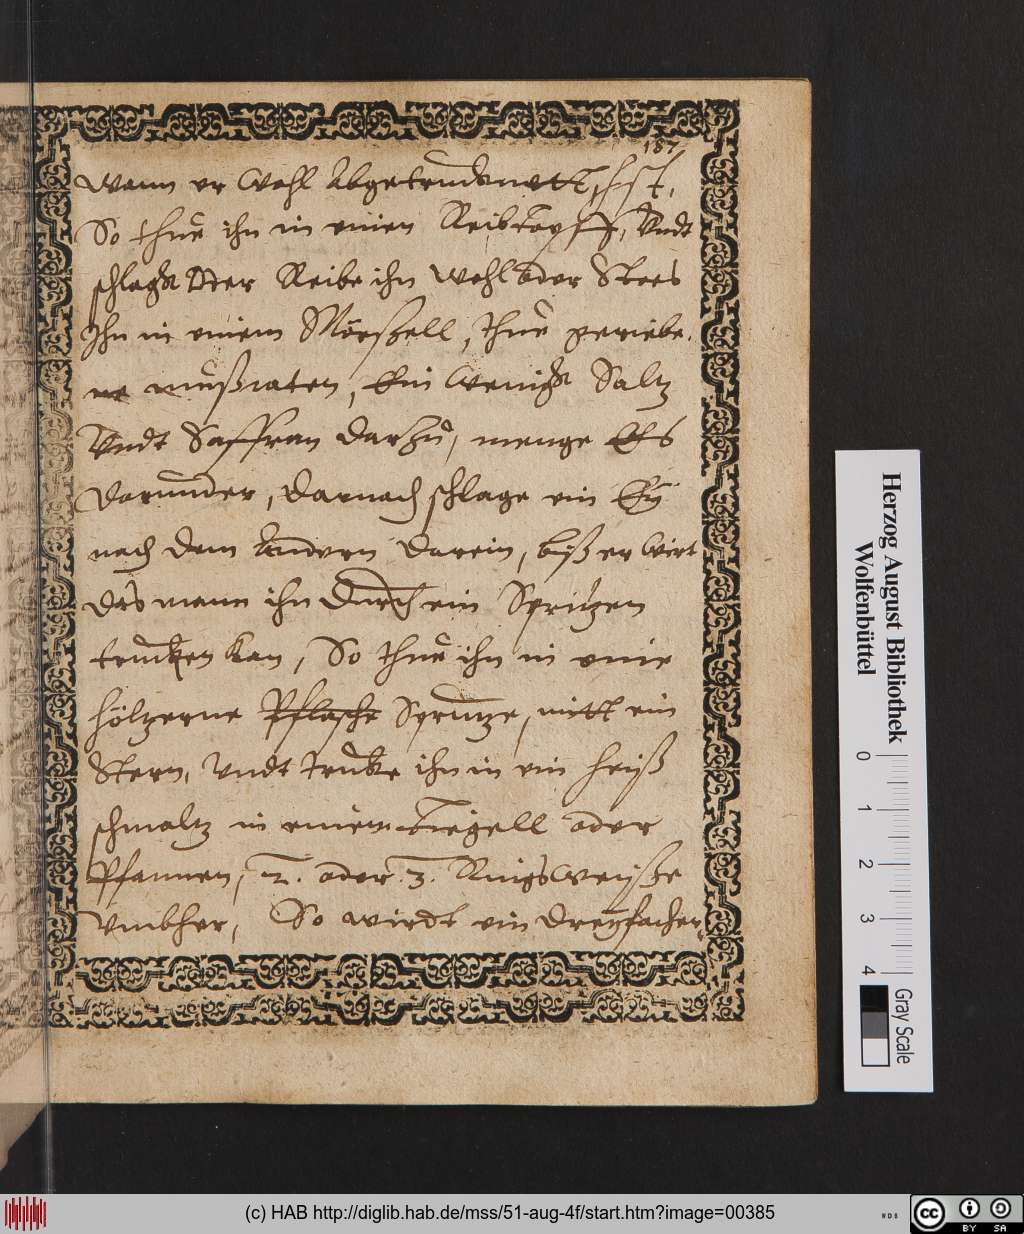 187
Wann er Wohl Abgetrucknett ist,
So thue ihn in einen Reibtopff, Undt
schlag oder Reibe ihn Wohl oder Stoes
Ihn in einem Mörßell, thue geriebe,
ne mußcaten, Ein Wenig Saltz
Undt Saffran darzu, menge Es
darunder, darnach schlage ein Ey
nach dem Andern darein, biß er Wirt
das mann ihn durch ein Spritzen
trucken kan, So thue ihn in eine
höltzerne Pflasche Sprutze, mitt ein
Stern, Undt trucke ihn in ein heiß
schmaltz in einem Tiegell oder
Pfannen, 2. oder 3. Ringsweyße
Umbher, So wirdt ein dreyfacher
Herzog August Bibliothek
Wolfenbüttel
0 1 2 3 4
Gray Scale
(c) HAB http://diglib.hab.de/mss/51-aug-4f/start.htm?image=00385
WDB
cc BY SA